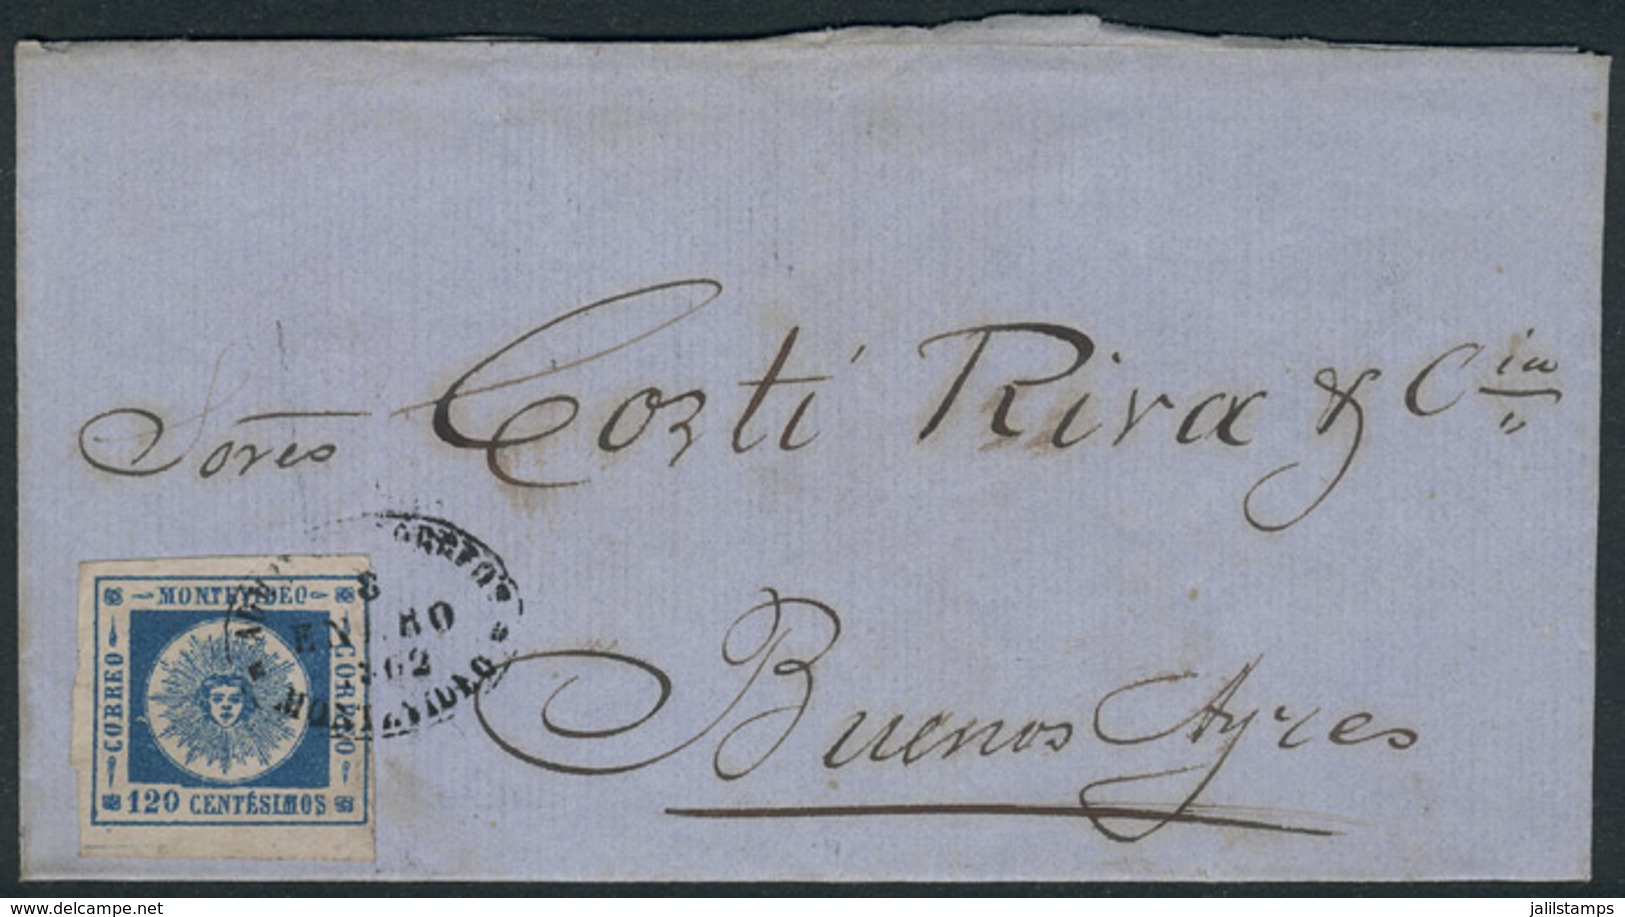 Sores Costi Riva & Cia
Buenos Ayres
MONTEVIDEO
CORREO
CORREO
120 CENTÉSIMOS
CORREOS
ENERO
1862
MONTEVIDEO
www.delcampe.net
jalilstamps